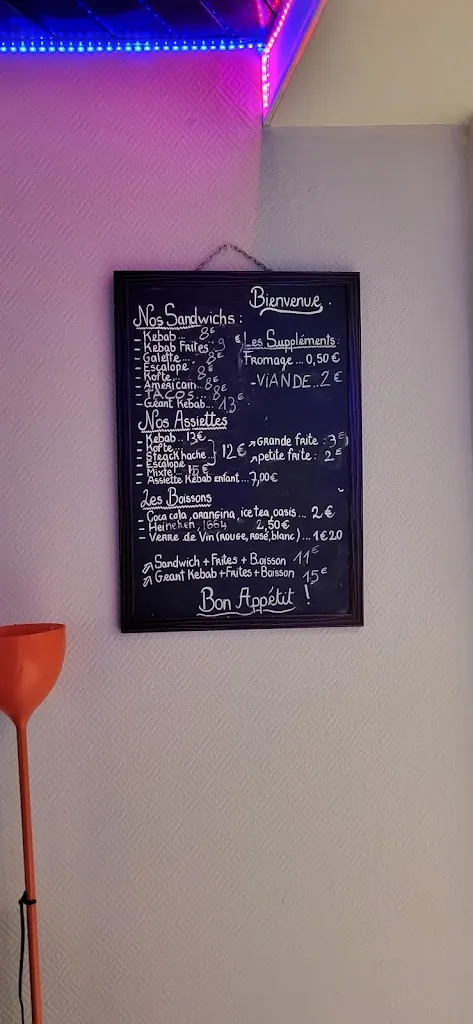 Bienvenue.
Nos Sandwichs :
- Kebab... 8€
- Kebab Frites.. 9 €
- Galette... 8€
- Escalope 8€
- Kofte... 8€
- Américain.. 8€
- TACOS... 8€
- Géant Kebab... 13€
Les Suppléments:
Fromage ... 0,50€
- VIANDE.. 2€
Nos Assiettes
- Kebab. 13€
- Kofte
- Steack hache
- Escalope
12€
- Mixte 15€
- Assiette Kebab enfant... 7,00€
Grande frite : 3€
petite frite : 2€
Les Boissons
- Coca cola, orangina, ice tea, oasis... 2€
- Heineken, 1664 2,50€
- Verre de Vin (rouge, rosé, blanc)... 1€20
Sandwich + Frites + Boisson 11€
Geant Kebab + Frites + Boisson 15€
Bon Appétit !